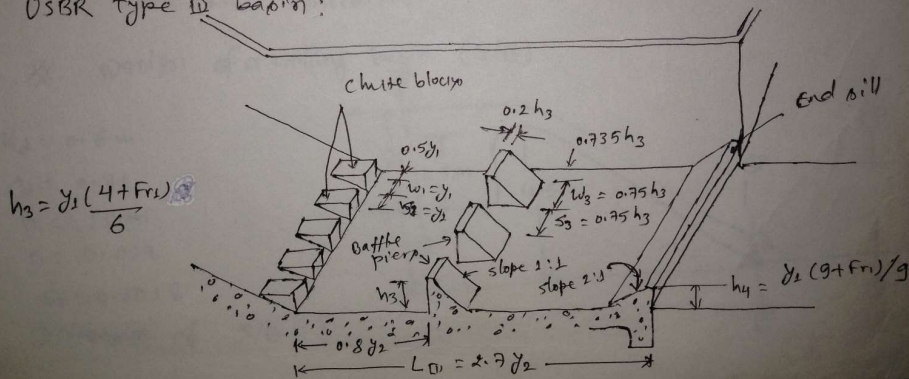 USBR Type III basin:
Chute blocks
0.2 h3
End sill
0.5y1
0.735h3
w1=y1
s1=y1
w3 = 0.75h3
s3 = 0.75h3
h3 = y1(4+Fr1)/6
Baffle piers
slope 1:1
slope 2:1
h3
h4 = y1(9+Fr1)/9
0.8y2
LIII = 2.7y2